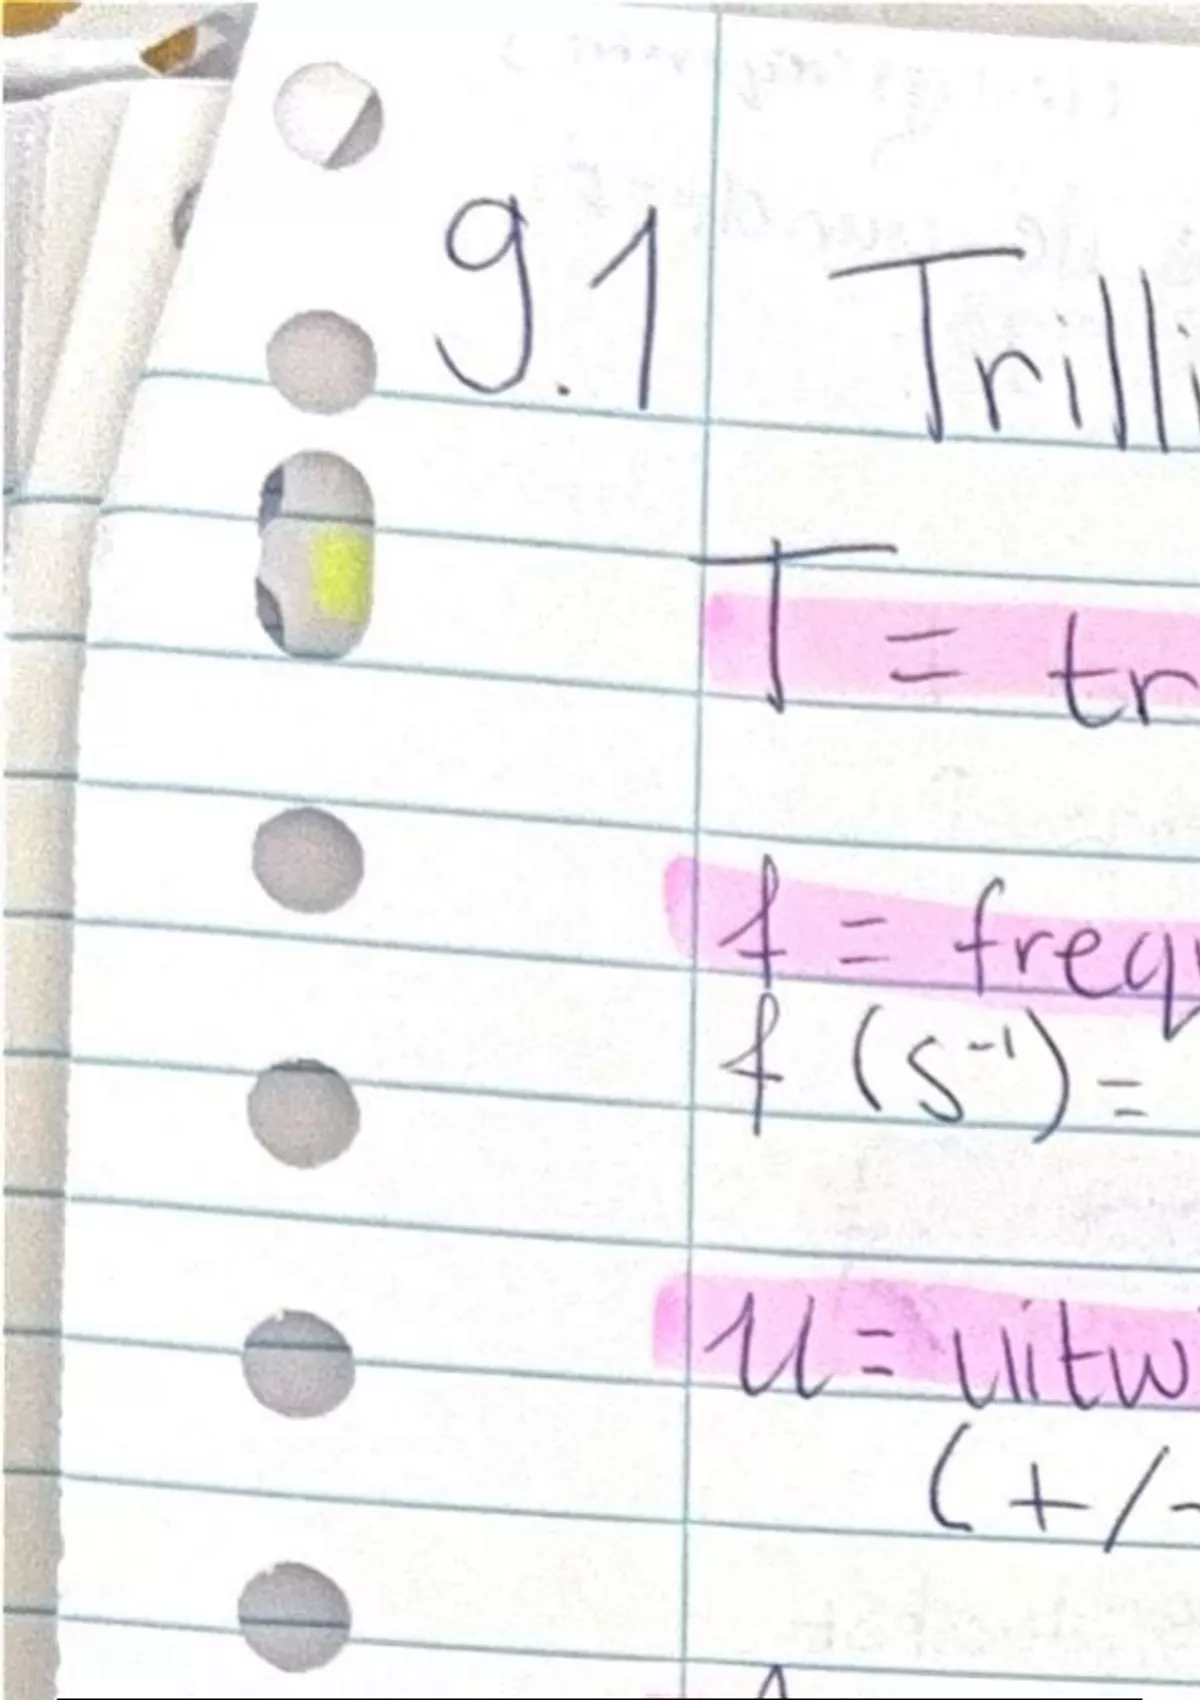 9.1 Trilli
T = tr
f = freq
f (s⁻¹) =
u = uitw
(+/-